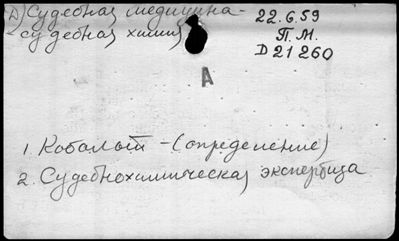 А) Судебная медицина -
судебная химия
22.6.59
П.М.
D 21 260
А
1. Кобальт - (определение)
2. Судебнохимическая экспертиза